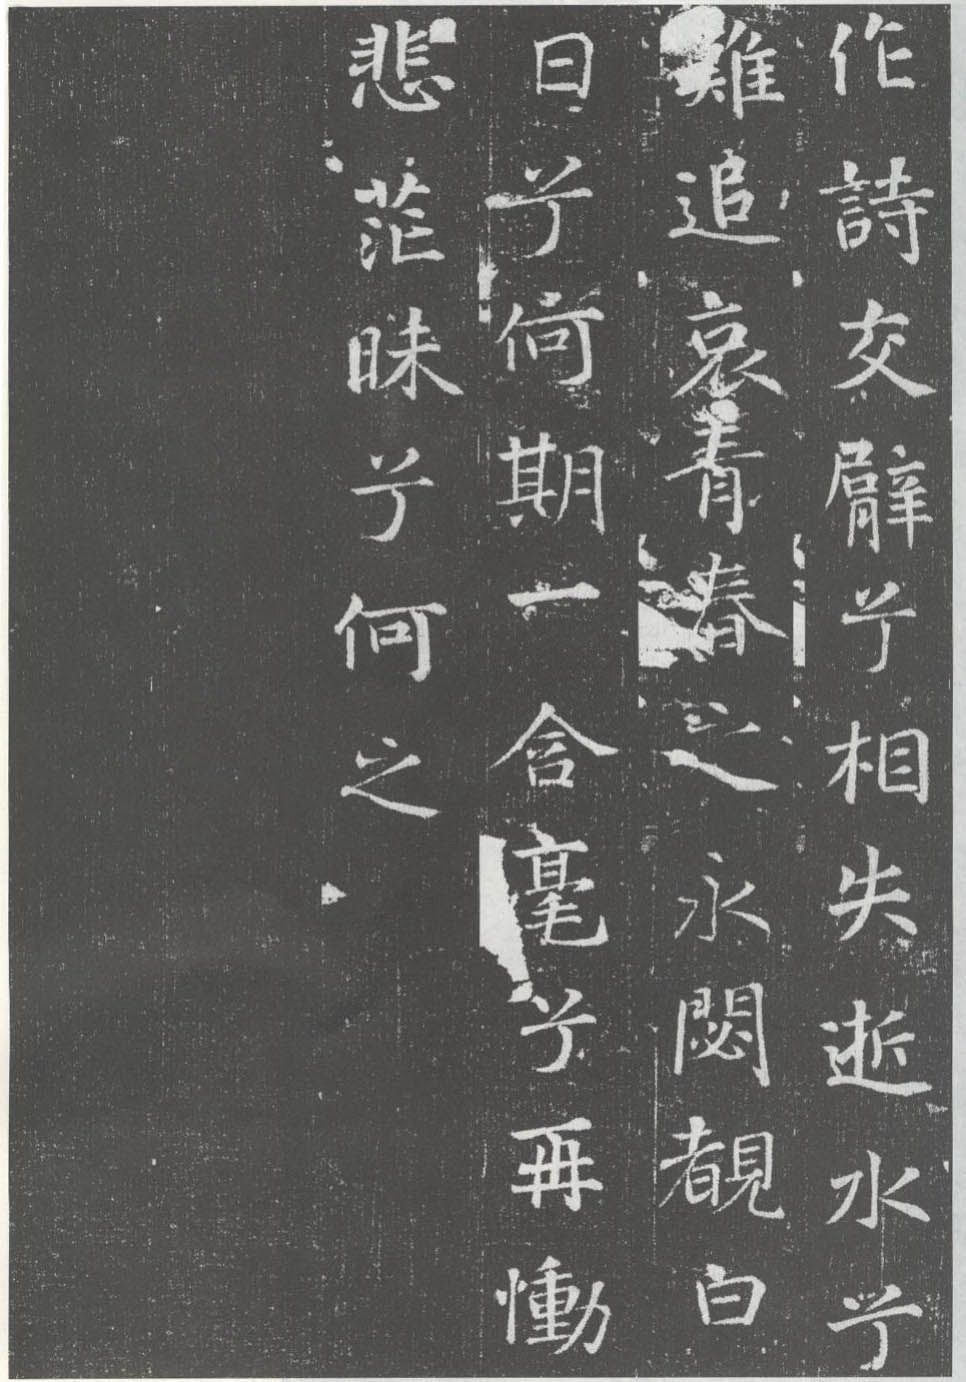 作詩交臂兮相失逝水兮
難追哀青春之永閟覩白
日兮何期一含毫兮再慟
悲茫昧兮何之